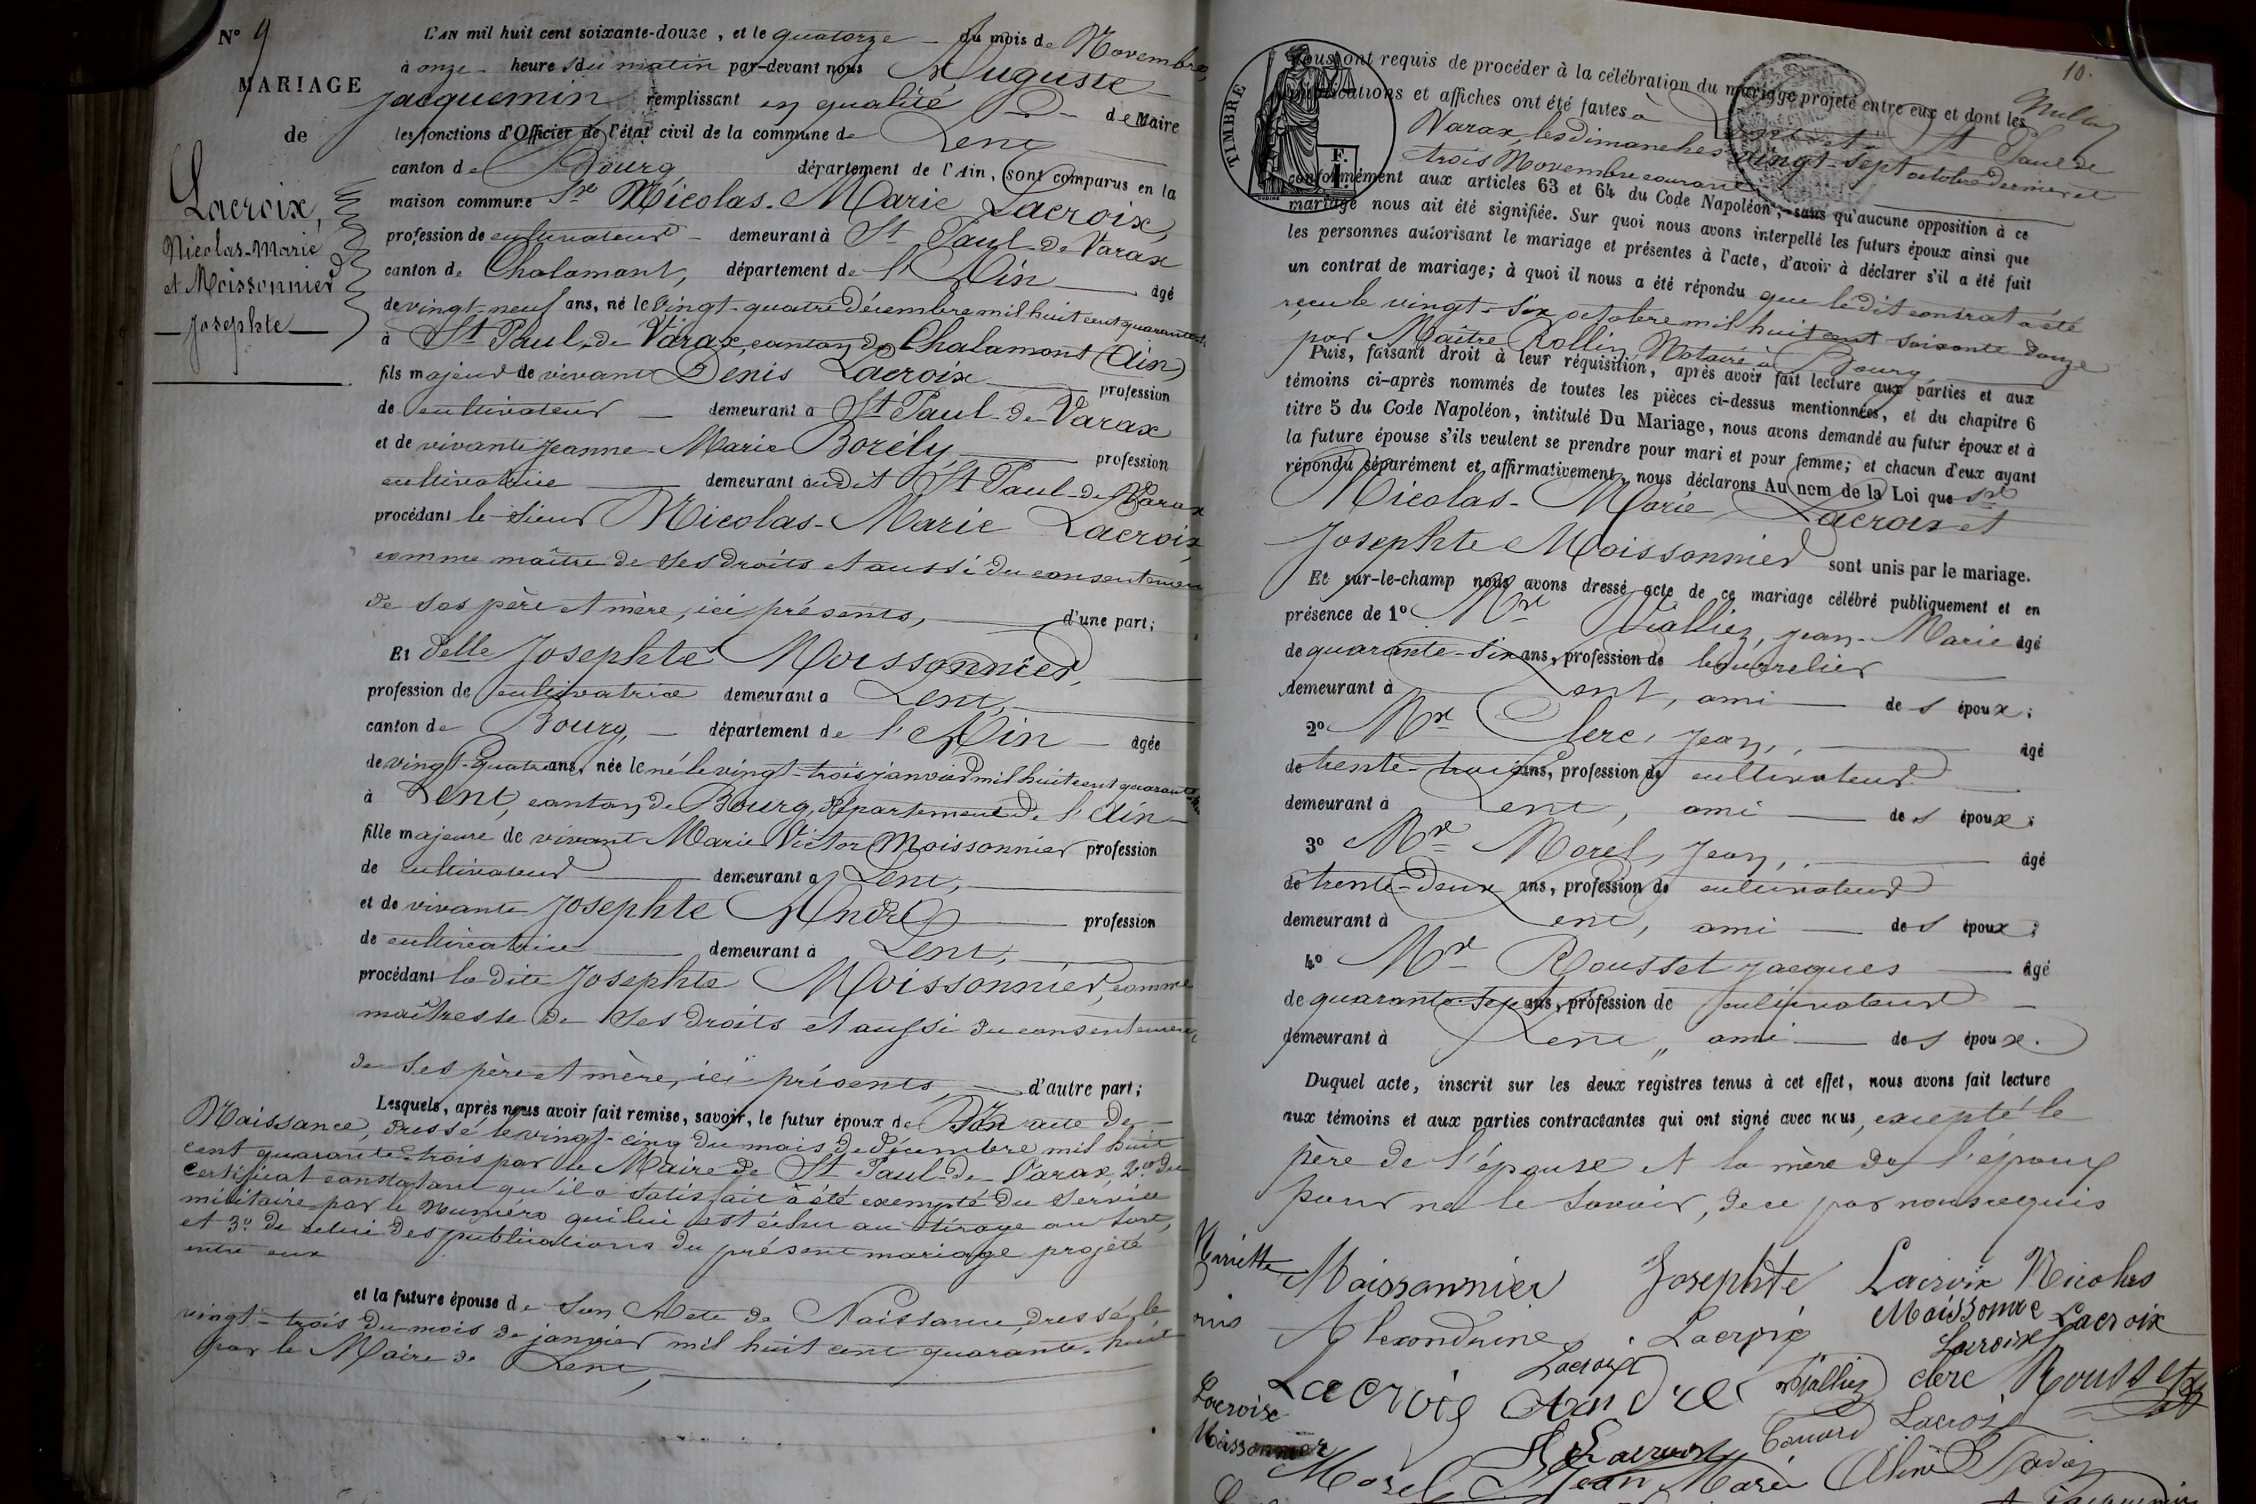 N° 9
MARIAGE
de
Lacroix,
Nicolas-Marie
et Moissonnier
Josephte
L'AN mil huit cent soixante-douze, et le quatorze du mois de Novembre,
à onze heures du matin par-devant nous Auguste
Jacquemin remplissant en qualité de Maire
les fonctions d'Officier de l'état civil de la commune de Lent
canton de Bourg, département de l'Ain, sont comparus en la
maison commune Sr Nicolas-Marie Lacroix,
profession de cultivateur demeurant à St Paul-de-Varax
canton de Chalamont, département de l'Ain âgé
de vingt-neuf ans, né le vingt-quatre décembre mil huit cent quarante
à St Paul-de-Varax, canton de Chalamont (Ain)
fils majeur de vivant Denis Lacroix profession
de cultivateur demeurant à St Paul-de-Varax
et de vivante Jeanne-Marie Borély, profession
cultivatrice demeurant audit St Paul-de-Varax
procédant le sieur Nicolas-Marie Lacroix
comme maître de ses droits et aussi du consentement
de ses père et mère, ici présents, d'une part;
Et Delle Josephte Moissonnier,
profession de cultivatrice demeurant à Lent,
canton de Bourg, département de l'Ain âgée
de vingt-quatre ans, née le né le vingt-trois janvier mil huit cent quarante
à Lent, canton de Bourg, département de l'Ain
fille majeure de vivant Marie Victor Moissonnier profession
de cultivateur demeurant à Lent,
et de vivante Josephte André profession
de cultivatrice demeurant à Lent,
procédant la dite Josephte Moissonnier, comme
maîtresse de ses droits et aussi du consentement
de ses père et mère, ici présents, d'autre part;
Lesquels, après nous avoir fait remise, savoir, le futur époux de Son acte de
Naissance, dressé le vingt-cinq du mois de Décembre mil huit
cent quarante-trois par le Maire de St Paul-de-Varax, 2° du
certificat constatant qu'il a satisfait à été exempté du service
militaire par le Numéro qui lui est échu au tirage au sort,
et 3° de celui des publications du présent mariage projeté
entre eux
et la future épouse de son Acte de Naissance, dressé le
vingt-trois du mois de janvier mil huit cent quarante-huit
par le Maire de Lent,
10.
TIMBRE
F.
1
nous ont requis de procéder à la célébration du mariage projeté entre eux et dont les
publications et affiches ont été faites à Lent et à St Paul de
Varax, les dimanches vingt-sept octobre dernier et
trois Novembre courant
conformément aux articles 63 et 64 du Code Napoléon; sans qu'aucune opposition à ce
mariage nous ait été signifiée. Sur quoi nous avons interpellé les futurs époux ainsi que
les personnes autorisant le mariage et présentes à l'acte, d'avoir à déclarer s'il a été fait
un contrat de mariage; à quoi il nous a été répondu que le dit contrat a été
reçu le vingt-six octobre mil huit cent soixante-douze
par Maître Rollin Notaire à Bourg
Puis, faisant droit à leur réquisition, après avoir fait lecture aux parties et aux
témoins ci-après nommés de toutes les pièces ci-dessus mentionnées, et du chapitre 6
titre 5 du Code Napoléon, intitulé Du Mariage, nous avons demandé au futur époux et à
la future épouse s'ils veulent se prendre pour mari et pour femme; et chacun d'eux ayant
répondu séparément et affirmativement, nous déclarons Au nom de la Loi que Sr
Nicolas-Marie Lacroix et
Josephte Moissonnier sont unis par le mariage.
Et sur-le-champ nous avons dressé acte de ce mariage célébré publiquement et en
présence de 1° Mr Vialliez, Jean-Marie âgé
de quarante-six ans, profession de bourrelier
demeurant à Lent, ami des époux;
2° Mr Clerc, Jean, âgé
de trente-trois ans, profession de cultivateur
demeurant à Lent, ami des époux;
3° Mr Morel, Jean, âgé
de trente-deux ans, profession de cultivateur
demeurant à Lent, ami des époux;
4° Mr Rousset Jacques âgé
de quarante-sept ans, profession de cultivateur
demeurant à Lent, ami des époux.
Duquel acte, inscrit sur les deux registres tenus à cet effet, nous avons fait lecture
aux témoins et aux parties contractantes qui ont signé avec nous, excepté le
père de l'épouse et la mère de l'époux
pour ne le savoir, de ce par nous requis
Mariette Moissonnier Josephte Lacroix Nicolas
Alexandrine Lacroix Moissonnie Lacroix
Lacroix Lacroix
Lacroix André Vialliez clerc Rousset
Lacroix
Moissonnier
Lacroix
Morel Jean Marie